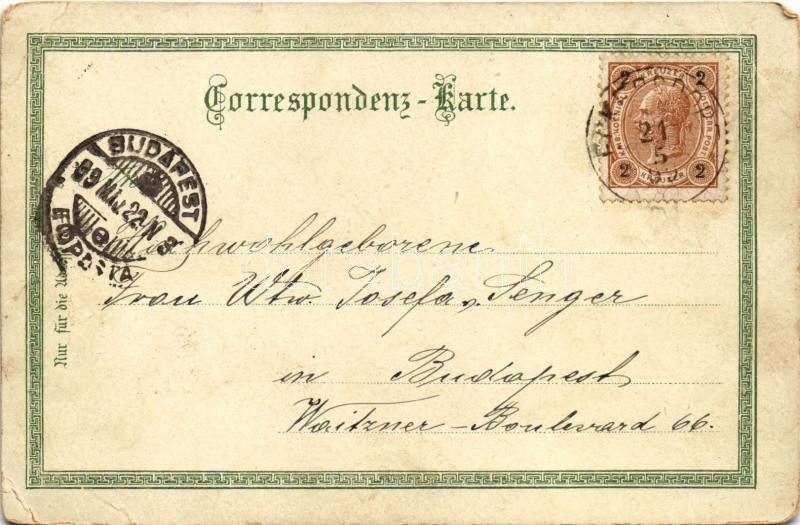 Correspondenz-Karte.
2 2
21
5
2 KREUZER 2
BUDAPEST
99 MÁJ. 22
FŐPOSTA
Nur für die
Hochwohlgeborene
Frau Wtw. Josefa v. Senger
in Budapest
Waitzner-Boulevard 66.